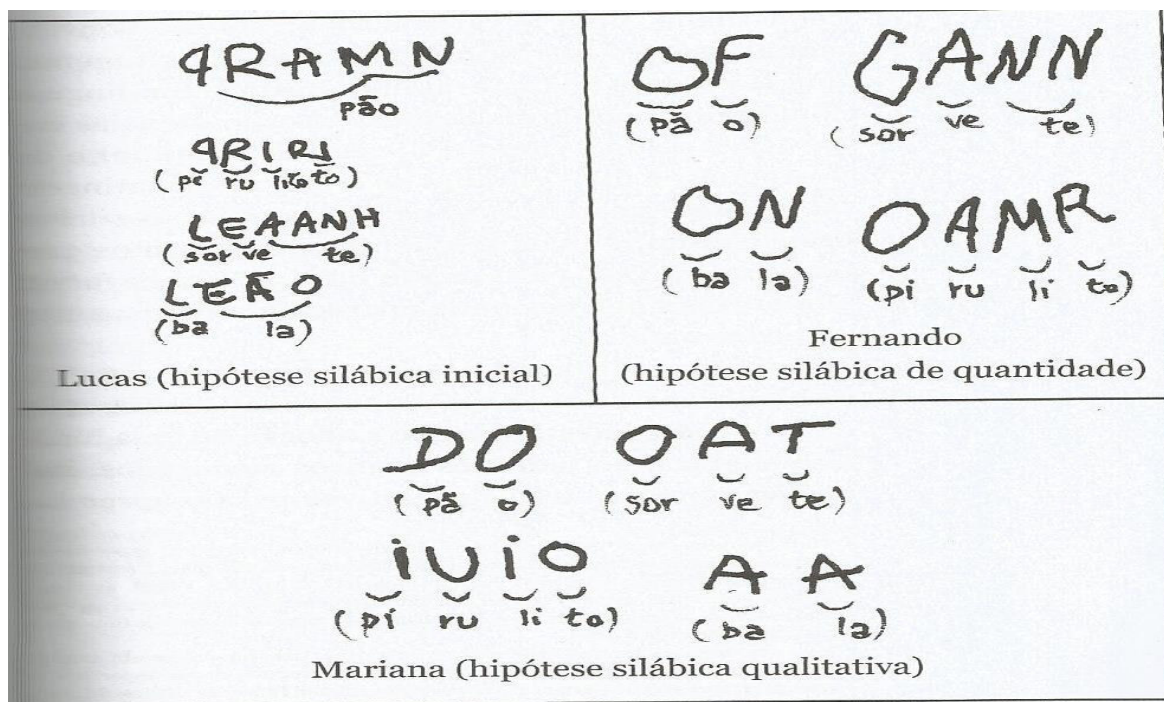 PRAMN
pão
PRIRI
(pi ru lito to)
LEAANH
(sor ve te)
LEÃO
(ba la)
Lucas (hipótese silábica inicial)
OF GANN
(pã o) (sor ve te)
ON OAMR
(ba la) (pi ru li to)
Fernando
(hipótese silábica de quantidade)
DO OAT
(pã o) (sor ve te)
iUiO AA
(pi ru li to) (ba la)
Mariana (hipótese silábica qualitativa)